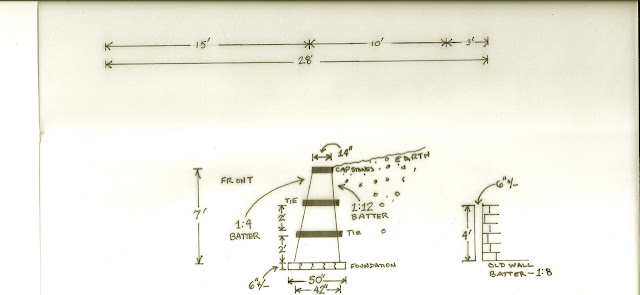 15' 10' 3'
28'
14"
EARTH
CAPSTONES
FRONT
TIE
1:4
BATTER
1:12
BATTER
7'
2'
TIE
2'
FOUNDATION
6"+/-
50"
42"
6"+/-
4'
OLD WALL
BATTER - 1:8